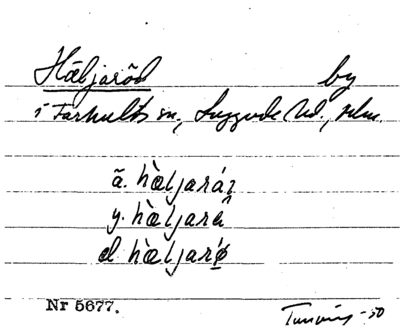 Hæljaröd by
i Farhults sn., Luggude hd., Mlm.
ã. hæ̀ljará
y. hæ̀ljarâ
d. hæ̀ljarǿ
Nr 5677.
Tuneving -30